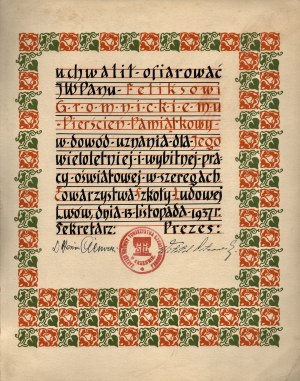 uchwalił·ofiarować
JWPanu·Feliksowi
Gromnickiemu
Pierścień·Pamiątkowy
w·dowód·uznania·dla·Jego
wieloletniej·i·wybitnej·pra
cy·oświatowej·w·szeregach
Towarzystwa·Szkoły·Ludowej
Lwów, dnia·15·listopada·1937r.
Sekretarz: Prezes: